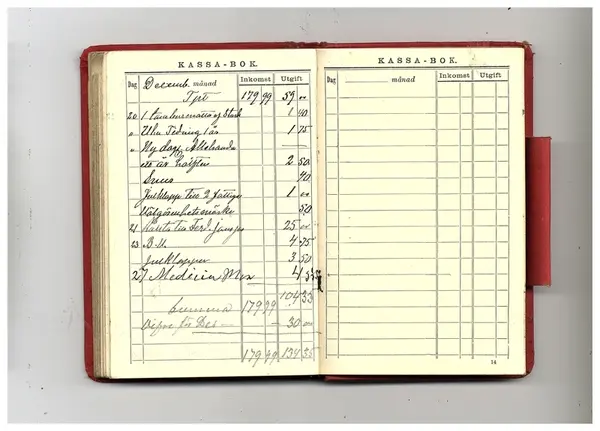 KASSA-BOK.
Dag Decemb. månad Inkomst Utgift
Tprt 179 99 59 00
20 1 Stark 1 40
" Tidning 1 år 1 75
" Ny dag Allehanda
ett år hälften 2 50
Snus 40
Julklapp till 2 fattiga 1 00
Välgörenhetsmärke 50
21 till Ferd. 25 00
23 B.U. 4 75
Julklappar 3 50
27 Medicin Mor 4 55
104 35
Summa 179 99
för Dec — 30 00
179 99 134 35
KASSA-BOK.
Dag månad Inkomst Utgift
14